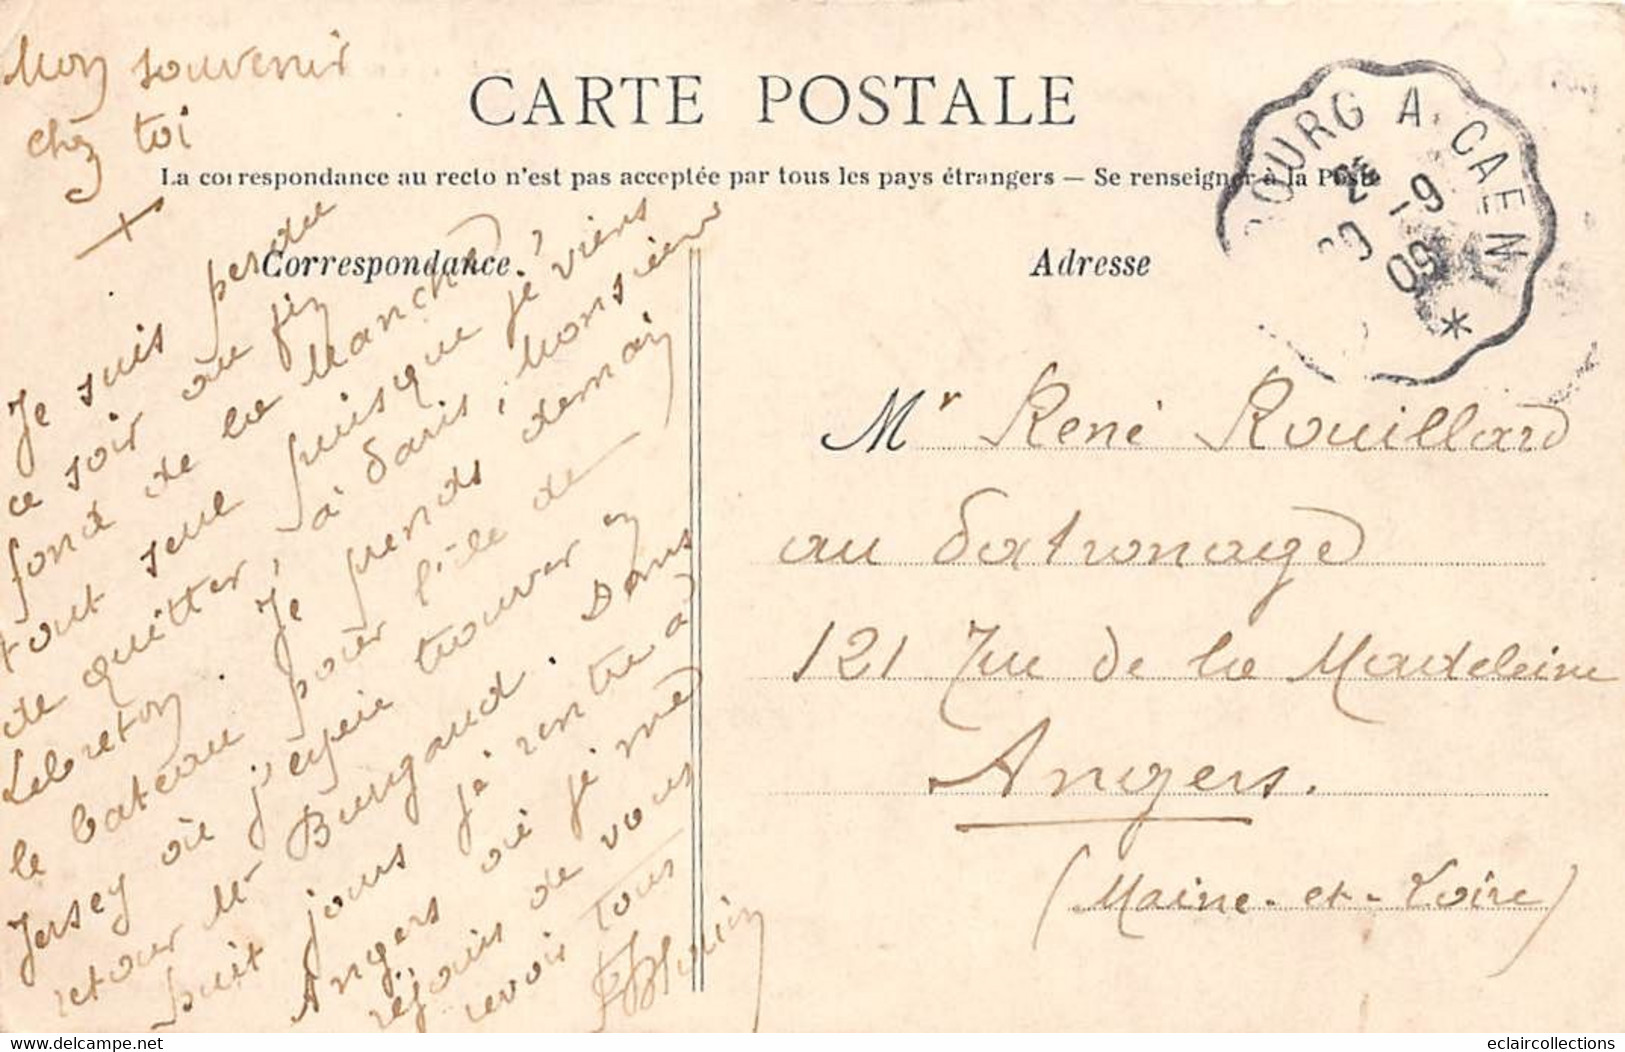 Mon souvenir
chez toi
CARTE POSTALE
La correspondance au recto n'est pas acceptée par tous les pays étrangers — Se renseigner à la Poste
OURG A. CAEN
-9
09
Correspondance.
Adresse
Je suis perdu
ce soir au fin
fond de la Manche
tout seul puisque je viens
de quitter, à Paris, Monsieur
Lebreton. Je prends demain
le bateau pour l'île de
Jersey où j'espère trouver en
retour Mr Burgaud. Dans
huit jours je rentre à
Angers où je me
réjouis de vous
revoir tous
Mr René Rouillard
au Patronage
121 Rue de la Madeleine
Angers.
(Maine-et-Loire)
eclaircollections